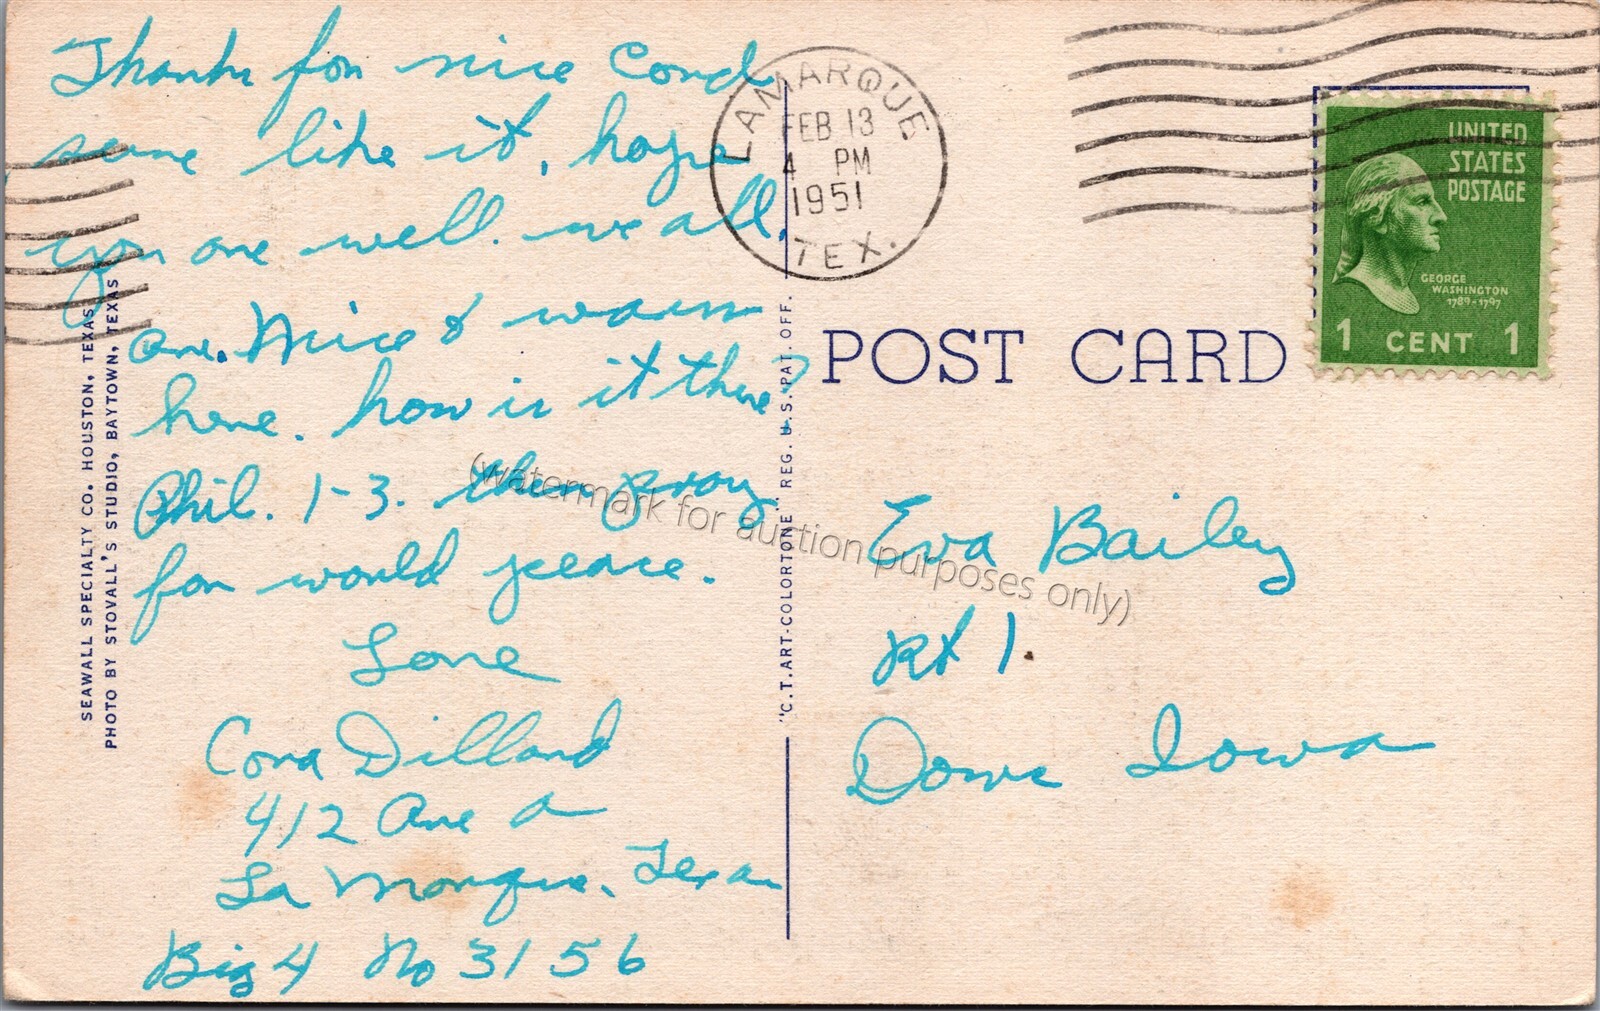 Thanks for nice Card
sure like it, hope
you are well. we all.
are. Nice & warm
here. how is it there?
Phil. 1-3. the pray
for would peace.
Love
Cora Dillard
412 Ave A
La Marque. Texas
Big 4 No 3156
SEAWALL SPECIALTY CO. HOUSTON, TEXAS
PHOTO BY STOVALL'S STUDIO, BAYTOWN, TEXAS
LAMARQUE
FEB 13
4 PM
1951
TEX.
UNITED
STATES
POSTAGE
GEORGE
WASHINGTON
1789-1797
1 CENT 1
POST CARD
"C.T. ART-COLORTONE" REG. U.S. PAT. OFF.
(watermark for auction purposes only)
Eva Bailey
Rt 1.
Dows Iowa